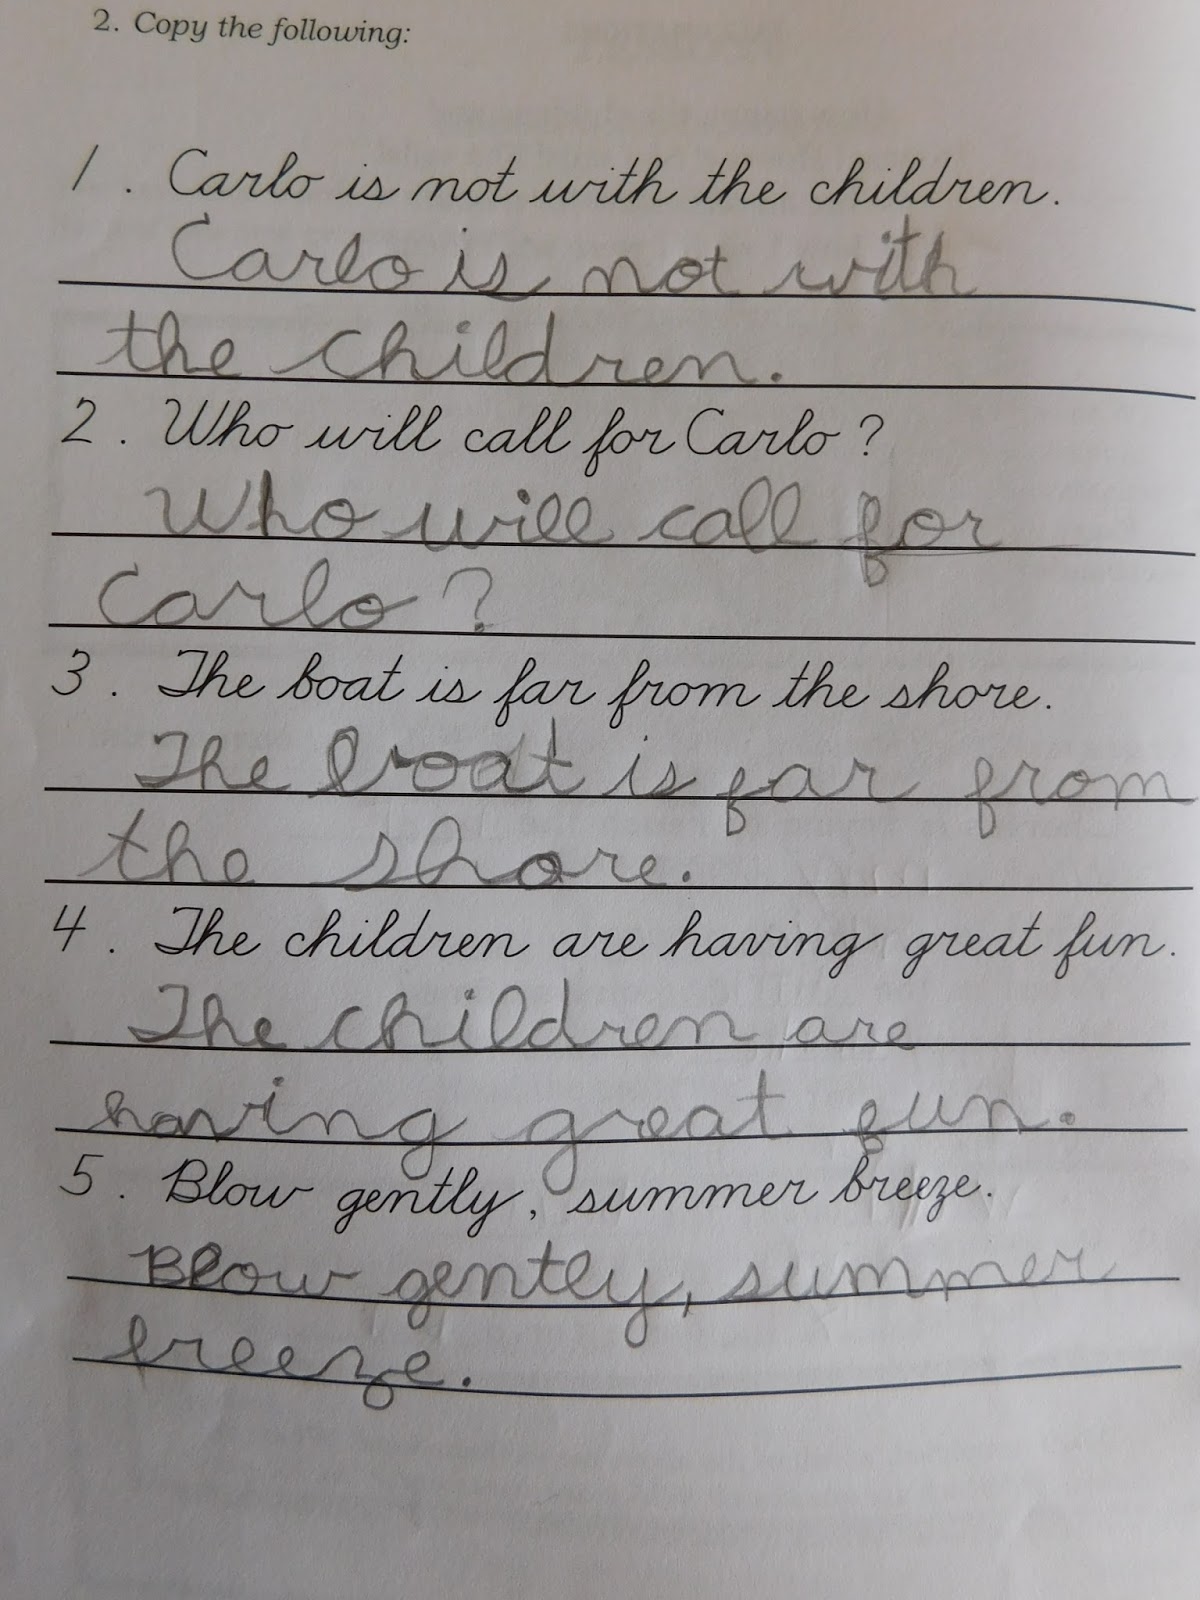 2. Copy the following:
1. Carlo is not with the children.
Carlo is not with
the children.
2. Who will call for Carlo?
Who will call for
Carlo?
3. The boat is far from the shore.
The boat is far from
the shore.
4. The children are having great fun.
The children are
having great fun.
5. Blow gently, summer breeze.
Blow gently, summer
breeze.